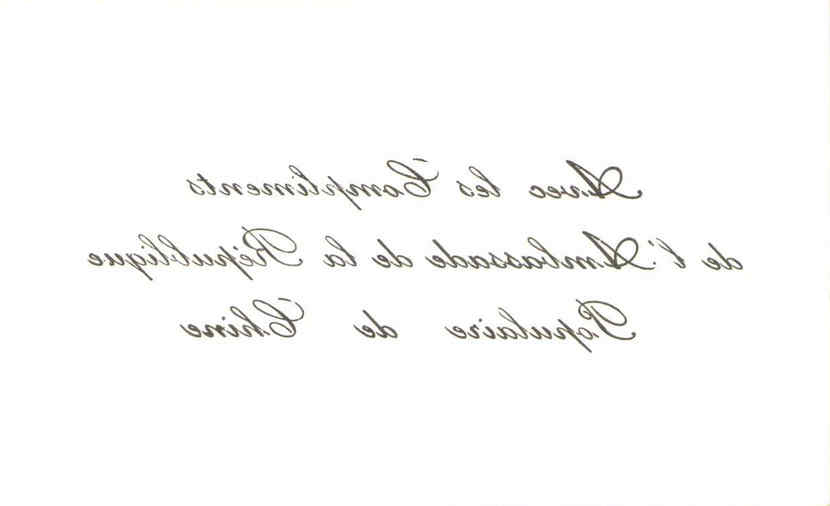 Avec les Compliments
de l'Ambassade de la République
Populaire de Chine